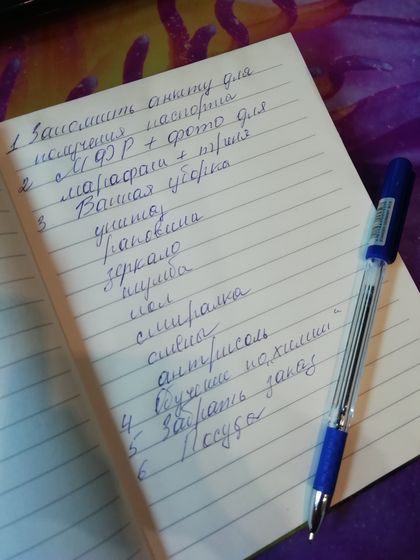 1 Заполнить анкету для
получения паспорта
2 МФР + фото для
марафона + трени
3 Ванная уборка
унитаз
раковина
зеркало
тумба
пол
стиралка
стены
антрисоль
4 Обучение по „химии“
5 Забрать заказ
6 Посуда